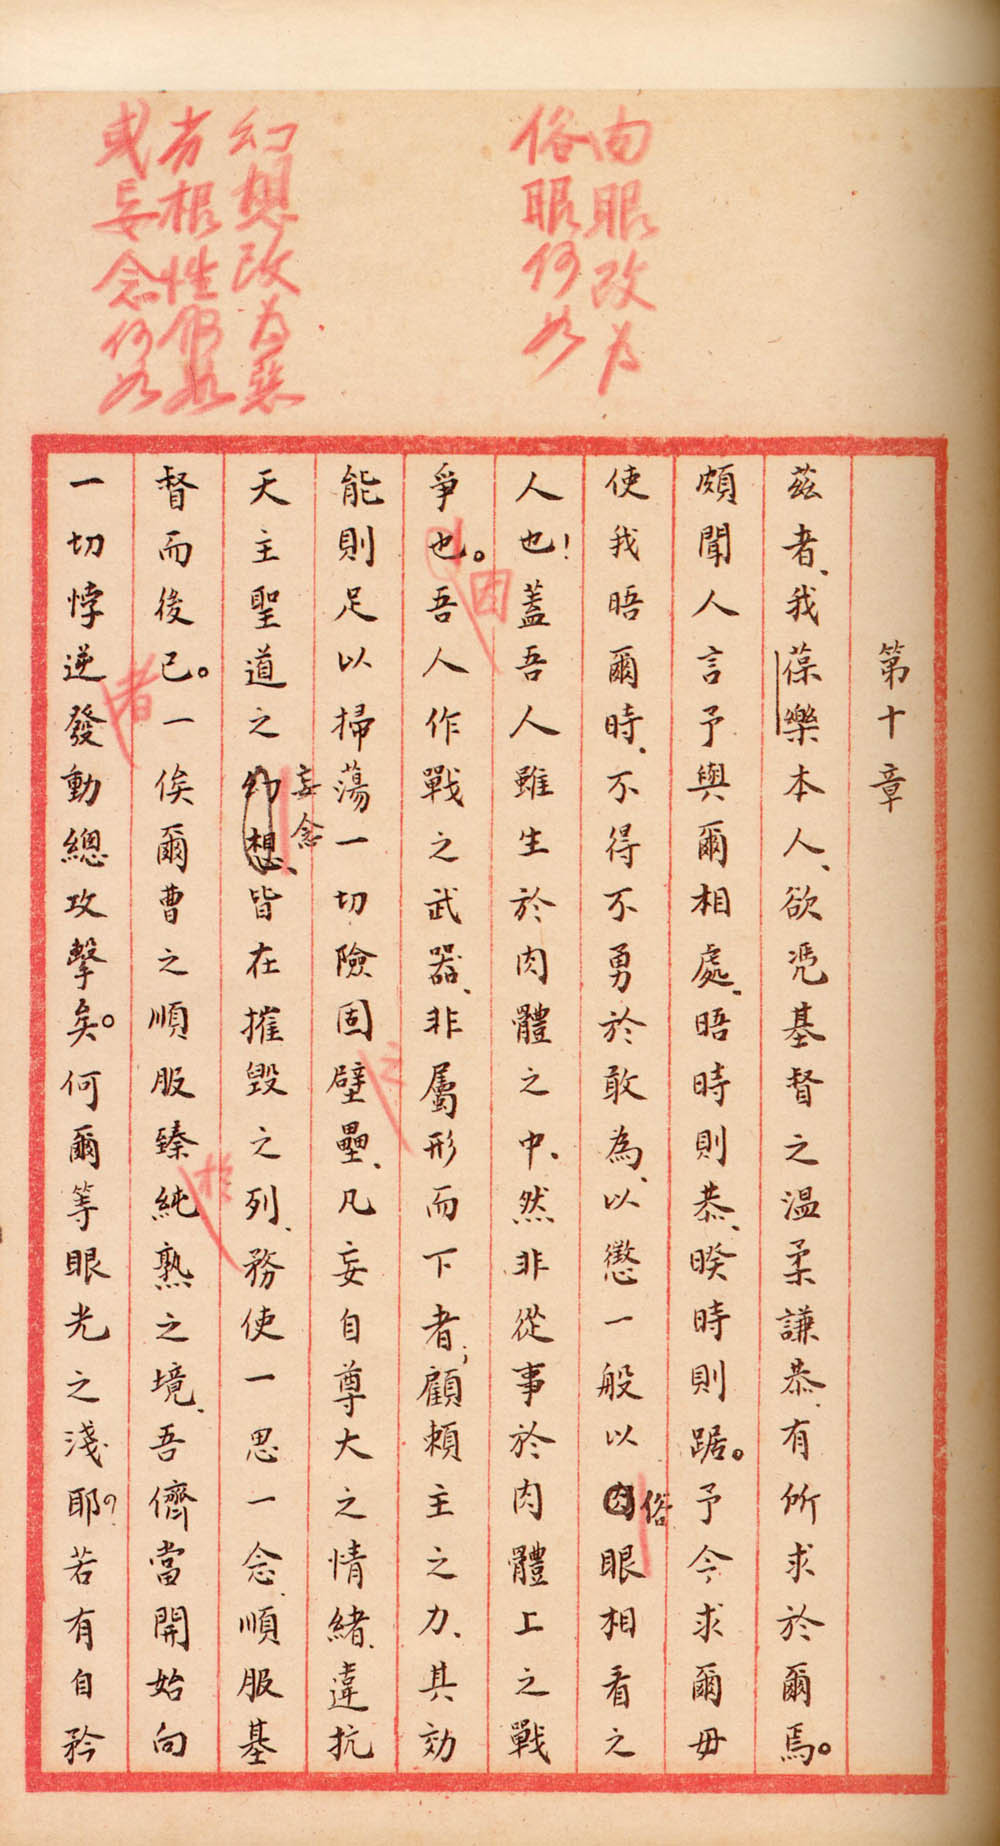 肉眼改為
俗眼何如
幻想改為惡
劣根性何如
或妄念何如
第十章
茲者、我葆樂本人、欲憑基督之溫柔謙恭、有所求於爾焉。
頗聞人言予與爾相處、晤時則恭、暌時則踞。予今求爾毋
使我晤爾時、不得不勇於敢為、以懲一般以肉眼相看之
俗
人也!蓋吾人雖生於肉體之中、然非從事於肉體上之戰
爭也。吾人作戰之武器、非屬形而下者;顧賴主之力、其効
因
能則足以掃蕩一切險固壁壘、凡妄自尊大之情緒、違抗
之
天主聖道之幻想、皆在摧毀之列、務使一思一念、順服基
妄念
督而後已。一俟爾曹之順服臻純熟之境、吾儕當開始向
於
一切悖逆發動總攻擊矣。何爾等眼光之淺耶?若有自矜
者